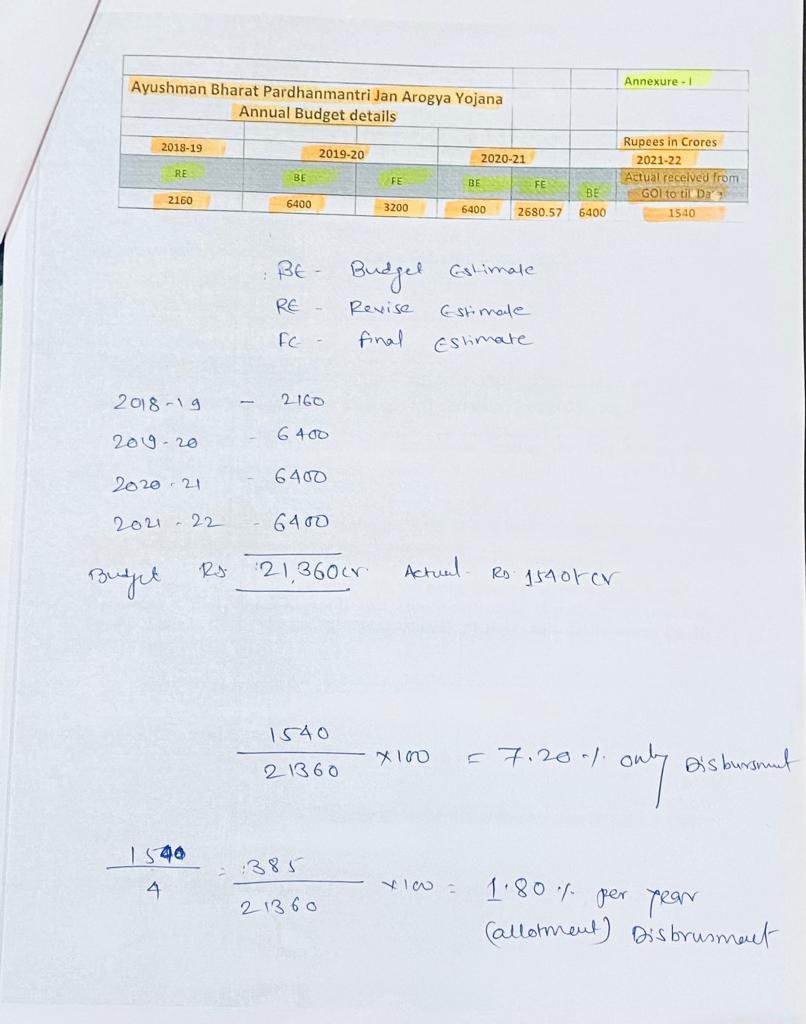 Annexure - I
Ayushman Bharat Pardhanmantri Jan Arogya Yojana
Annual Budget details
Rupees in Crores
2018-19 2019-20 2020-21 2021-22
RE BE FE BE FE BE Actual received from
GOI to til Date
2160 6400 3200 6400 2680.57 6400 1540
: BE - Budget Estimate
RE - Revise Estimate
FE - final Estimate
2018-19 - 2160
2019-20 - 6400
2020-21 - 6400
2021-22 - 6400
Budget Rs 21,360cr Actual Rs 1540 cr
1540
21360 ×100 = 7.20 % only Disbursmnt
1540
4 = 385
21360 ×100 = 1.80 % per year
(allotment) Disbrusment